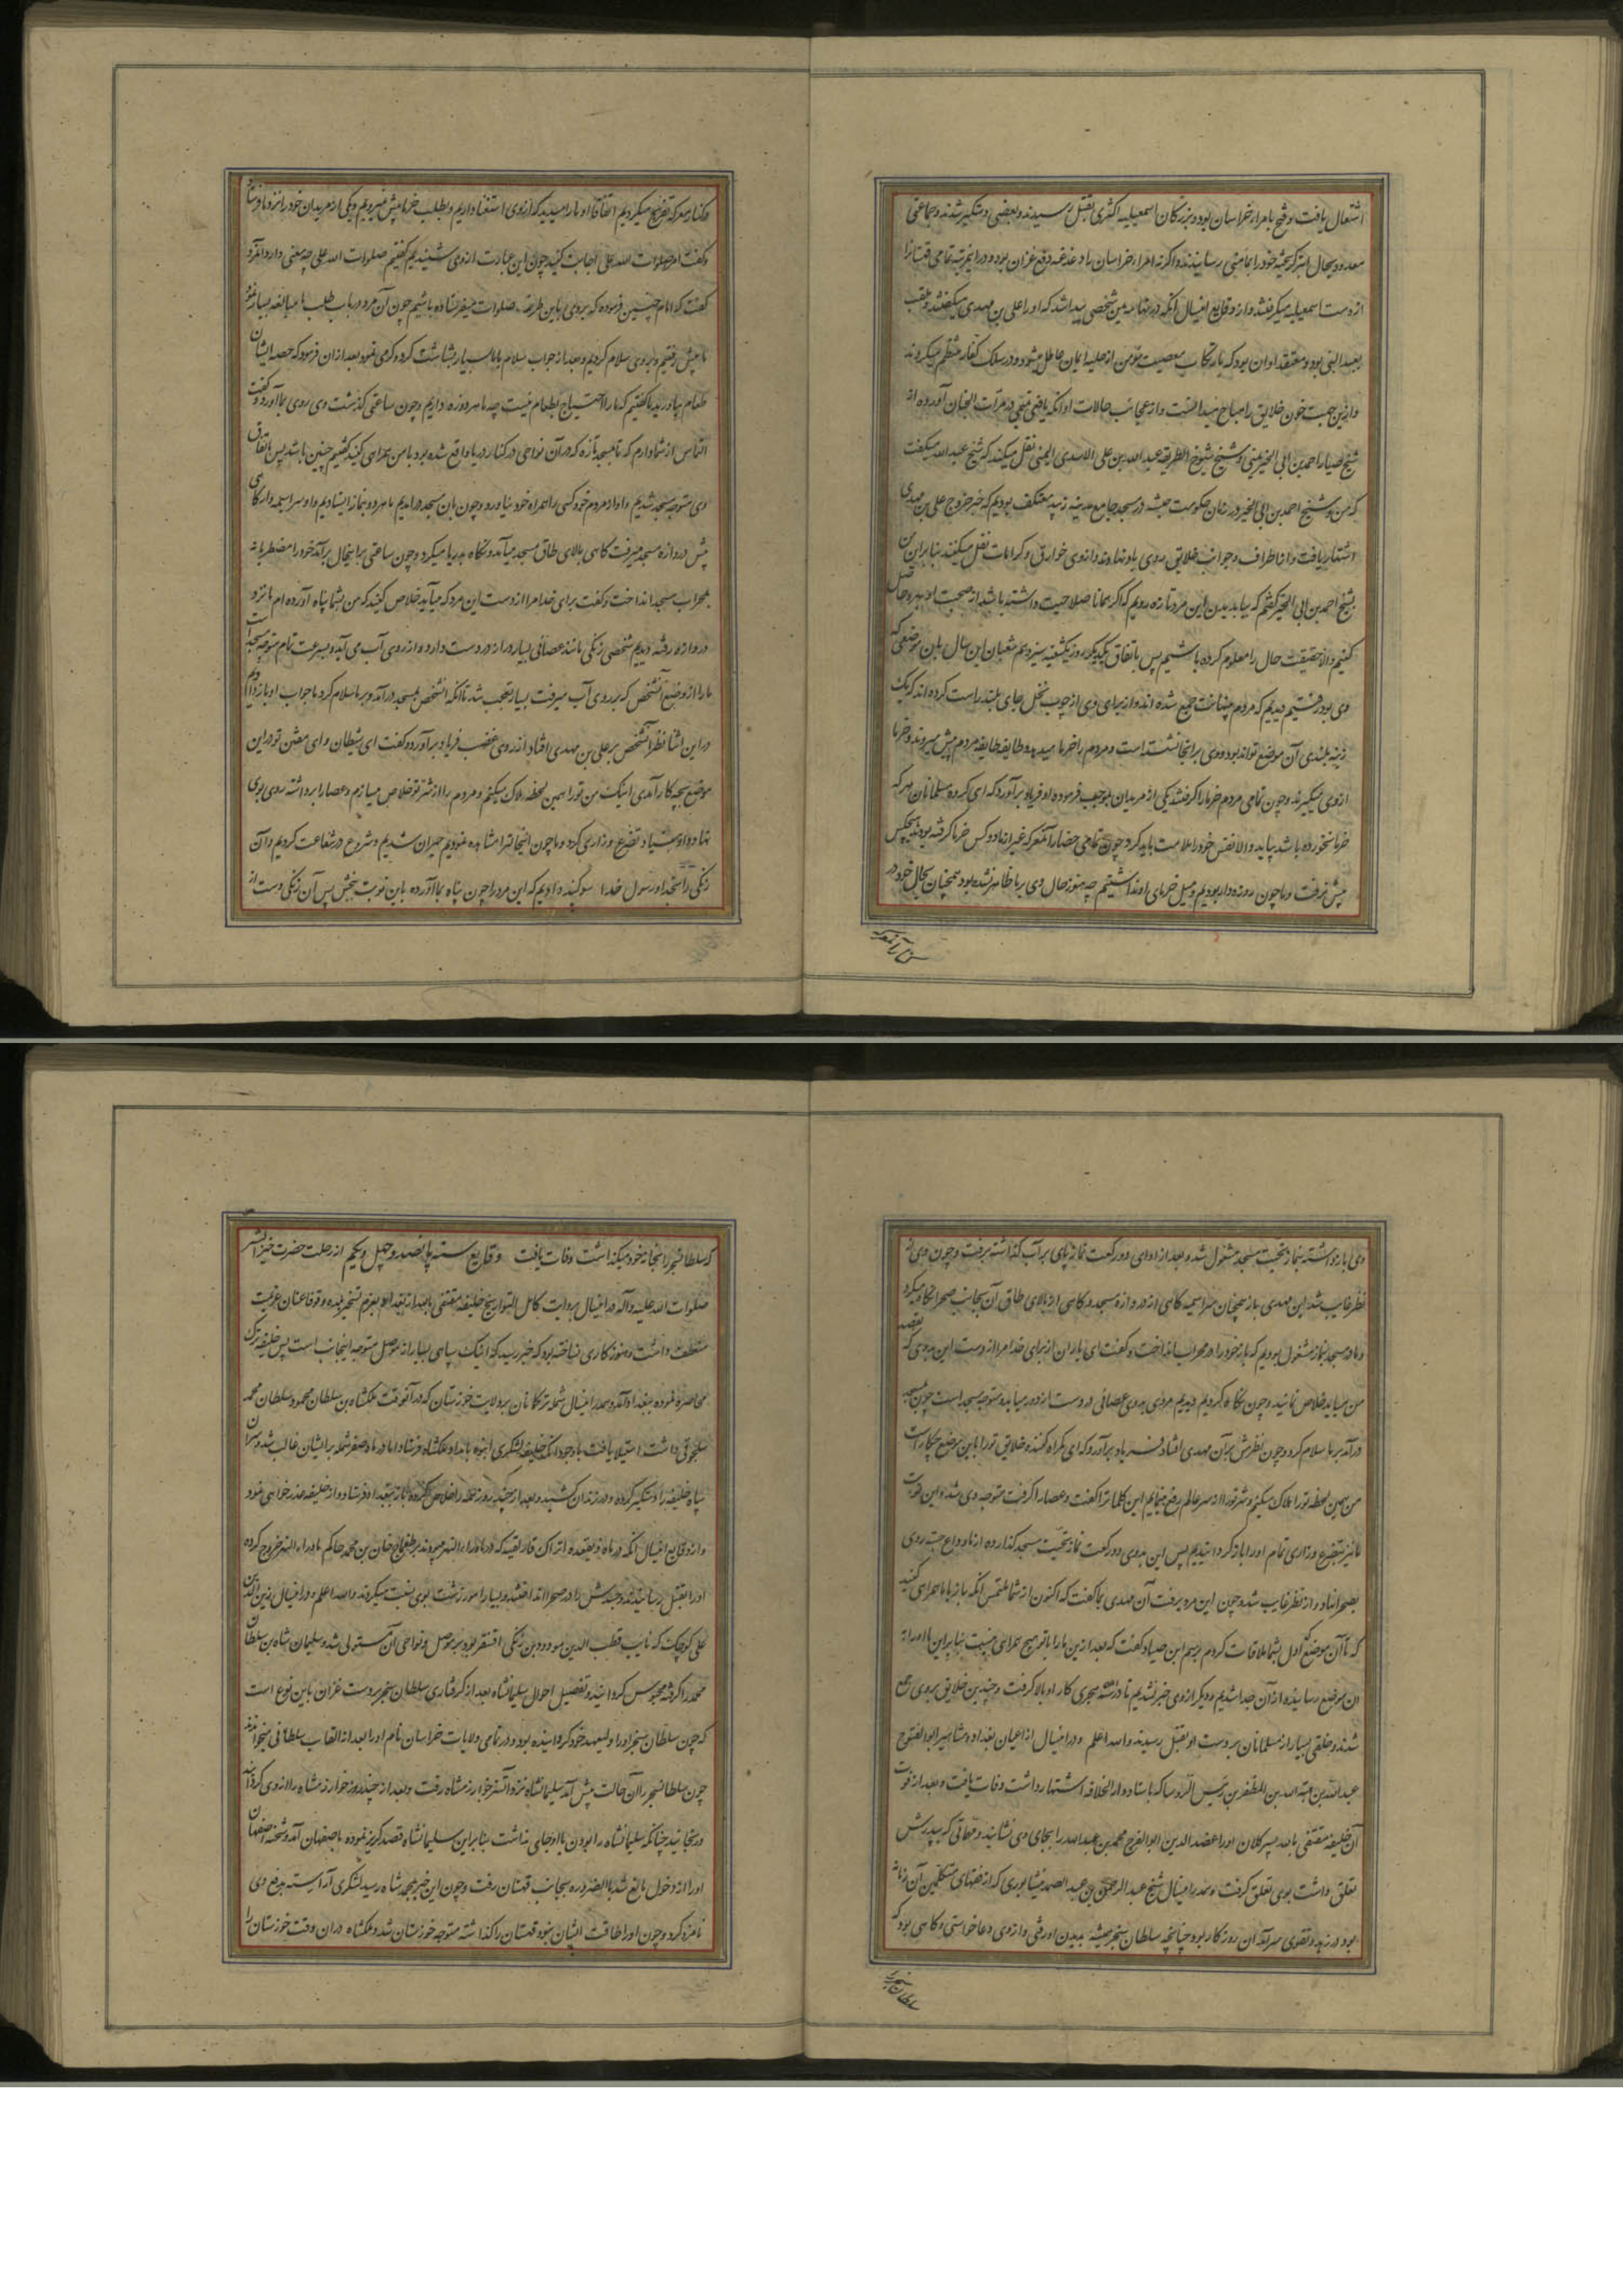 اشتعال یافت و فتح با مراء خراسان بود و بزرگان اسمعیلیه اکثری بقتل رسیدند و بعضی دستگیر شدند و جماعتی
معدود بحال ابتر گریخته خود را بمأمنی رسانیدند و اگر نه امراء خراسان را دغدغه دفع غزان بود و در این مرتبه تمامی قهستانرا
از دست اسمعیلیه میگرفتند و از وقایع اینسال آنکه در تهامه یمن شخصی پیدا شد که او را علی بن مهدی میگفتند و ملقب
بعبدالنبی بود و معتقد او آن بود که بارتکاب معصیت مؤمن از حلیه ایمان عاطل میشود و در سلک کفار منتظم میگردد
و ازین جهت خون خلایق را مباح میدانست و از عجائب حالات او آنکه یافعی یمنی در مرآت الجنان آورده از
شیخ صیاد احمد بن ابی الخیر یمنی و شیخ شیوخ الطریقه عبد الله بن علی الاسدی الیمنی نقل میکند که شیخ عبد الله میگفت
که من و شیخ احمد بن ابی الخیر در زمان حکومت حبشه در مسجد جامع مدینه زبید معتکف بودیم که خبر خروج علی بن مهدی
اشتهار یافت و از اطراف و جوانب خلایق روی باو نهادند و ازوی خوارق و کرامات نقل میکنند بنا براین من
بشیخ احمد بن ابی الخیر گفتم که بیا بدیدن این مرد تازه رویم که اگر همانا صلاحیت داشته باشد از صحبت او بهره حاصل
کنیم والا حقیقت حال را معلوم کرده باشیم پس باتفاق یکدیگر روز یکشنبه سیزدهم شعبان این سال بان موضعی که
وی بود رفتیم دیدیم که مردم بینهایت جمع شده اند و از برای وی از چوب نخل جای بلند راست کرده اند که یک
نیزه بلندی آن موضع تواند بود و وی بر آنجا نشسته است و مردم را خرما میدهد و طایفه طایفه مردم پیش میروند و خرما
ازوی میگیرند و چون تمامی مردم خرما را گرفتند یکی از مریدان بموجب فرموده او فریاد برآورد که ای گروه مسلمانان هر که
خرما نخورده باشد بیاید والا نفس خود را ملامت باید کرد چون تمامی حضار آنمعرکه غیر از ما دو کس خرما گرفته بودند هیچکس
پیش نرفت و ما چون روزه دار بودیم و میل خرمای او نداشتیم چه هنوز حال وی بر ما ظاهر نشده بود همچنان بحال خود در
و کنار معرکه تفرج میکردیم اتفاقا او ما را میدید که ازوی استغنا داریم و بطلب خرما پیش نمیرویم و یکی از مریدان خود را نزد ما فرستاد
و گفت امر صلوات الله علی اجابت کنید چون این عبارت ازوی شنیدیم گفتیم صلوات الله علی چه معنی دارد آنمرد
گفت که امام چنین فرموده که بروی باین طریقه صلوات میفرستاده باشیم چون آن مرد در باب طلب ما مبالغه بسیار نمود
ما پیش رفتیم و بروی سلام کردیم و بعد از جواب سلام با ما بسیار بشاشت کرد و گرمی نمود بعد از ان فرمود که حصه ایشان
طعام بیاورید ما گفتیم که ما را احتیاج بطعام نیست چه ما هر دو روزه داریم و چون ساعتی گذشت وی روی بما آورد و گفت
التماس از شما دارم که تا مسجد تازه که در آن نواحی در کنار دریا واقع شده بود با من همراهی کنید گفتیم چنین باشد پس باتفاق
وی متوجه مسجد شدیم و او از مردم خود کسی را همراه خود نیاورد و چون بان مسجد درآمدیم ما هر دو بنماز ایستادیم و او سراسیمه وار گاهی
پیش دروازه مسجد میرفت گاهی بالای طاق مسجد میآمد و نگاه بدریا میکرد و چون ساعتی براینحال برآمد خود را مضطربانه
بمحراب مسجد انداخت و گفت برای خدا مرا از دست این مرد که میآید خلاص کنید که من بشما پناه آورده ام ما نزد
دروازه رفته دیدیم شخصی زنگی مانند عصائی بسیار دراز در دست دارد و از روی آب می آید و بسرعت تمام متوجه مسجد است
ما را از وضع آنشخص که بر روی آب میرفت بسیار تعجب شد تا آنکه آنشخص بمسجد درآمد و بر ما سلام کرد ما جواب او باز دادیم
در این اثنا نظر آنشخص بر علی بن مهدی افتاد از روی غضب فریاد برآورد و گفت ای شیطان و ای مفتن تو در این
موضع بچه کار آمدی اینک من تو را همین لحظه هلاک میکنم و مردم را از شر تو خلاص میسازم و عصا را برداشته روی بوی
نهاد و او بنیاد تضرع و زاری کرد و ما چون اینحالترا مشاهده نمودیم حیران شدیم و شروع در شفاعت کردیم و آن
زنگی را بخدا و رسول خدا سوگند دادیم که این مرد را چون پناه بما آورده باین نوبت ببخش پس آن زنگی دست از
وی بازداشته بنماز تحیت مسجد مشغول شد و بعد از ادای دو رکعت نماز پای بر آب گذاشته برفت و چون وی از
نظر غایب شد ابن مهدی باز همچنان سراسیمه گاهی از دروازه مسجد و گاهی از بالای طاق آن بجانب صحرا نگاه میکرد
و ما در مسجد بنماز مشغول بودیم که باز خود را در محراب انداخت و گفت ای یاران از برای خدا مرا از دست این بدوی که بقصد
من میآید خلاص نمائید و چون نگاه کردیم دیدیم مردی بدوی عصائی در دست از دور میآید و متوجه مسجد است چون بمسجد
درآمد بر ما سلام کرد و چون نظرش بر آن مهدی افتاد فریاد برآورد که ای گمراه کننده خلایق تو را باین موضع چکار است
من همین لحظه تو را هلاک میکنم و شر تو را از سر عالم رفع مینمایم این کلماترا گفت و عصا را گرفت متوجه وی شد و این نوبت
ما نیز بتضرع و زاری تمام او را باز گردانیدیم پس این بدوی دو رکعت نماز تحیت مسجد گذارده از ما وداع جسته روی
بصحرا نهاد و از نظر غایب شد و چون این مرد برفت آن مهدی بما گفت که اکنون از شما ملتمس آنکه باز با ما همراهی کنید
که تا آن موضع که اول بشما ملاقات کردم برسم ابن صیاد گفت که بعد ازین ما را با تو هیچ همراهی نیست بنا براین ما او را به
آن موضع رسانیده از آن جدا شدیم و دیگر ازوی خبر نشدیم تا در سنه هجری کار او بالا گرفت و چندین خلایق بروی جمع
شدند و خلقی بسیار از مسلمانان بر دست او بقتل رسیدند والله اعلم و در اینسال از اعیان بغداد و مشاهیر ابوالفتوح
عبدالله بن هبة الله بن المظفر بن رئیس الرؤسا که باستاد دار الخلافه اشتهار داشت وفات یافت و بعد از فوت
آن خلیفه مقتفی بالله پسر کلان او را عضد الدین ابوالفرج محمد بن عبدالله را بجای وی نشانید و مهماتی که بپدرش
تعلق داشت بوی تعلق گرفت و هم در اینسال شیخ عبد الرحمن بن عبد الصمد نیشابوری که از فقهای متکلمین آن زمانه
بود و در زهد و تقوی سرآمد آن روزگار بود چنانچه سلطان سنجر همیشه بدیدن او رفتی و ازوی دعا خواستی و گاهی بود که
سلطان سنجر را
که سلطان سنجر را بخانه خود نمیگذاشت وفات یافت وقایع سنه پانصد و چهل و یکم از رحلت حضرت خیر البشر
صلوات الله علیه و آله در اینسال بروایت کامل التواریخ خلیفه مقتفی بالله از بغداد بعزم تسخیر بلده دقوقا عنان عزیمت
منعطف داشت و هنوز کاری نساخته بود که خبر رسید که اینک سپاهی بسیار از موصل متوجه اینجانب است پس خلیفه ترک
محاصره نموده ببغداد آمد و هم در اینسال شمله ترکمان بر ولایت خوزستان که در آنوقت ملکشاه بن سلطان محمود سلطان محمد
سلجوقی داشت استیلا یافت باوجود آنکه خلیفه لشکری انبوه بامداد ملکشاه فرستاد اما در ماه صفر شمله بر ایشان غالب شد و سران
سپاه خلیفه را دستگیر کرده و در زندان کشید و بعد از چند روز همه را خلاص کرده باز ببغداد فرستاد و از خلیفه عذر خواهی نمود
و از وقایع اینسال آنکه در ماه ذیقعده اتراک قارلقیه که در ماوراء النهر میبودند بر طمغاج خان بن محمد حاکم ماوراء النهر خروج کرده
او را بقتل رسانیدند و جسدش را در صحرا انداختند و بسیار امور زشت بوی نسبت میکردند والله اعلم و در اینسال زین الدین
علی کوچک که نایب قطب الدین مودود بن زنگی اقسنقر بود بر موصل و نواحی آن مستولی شد و سلیمان شاه بن سلطان
محمد را گرفته محبوس گردانید و تفصیل احوال سلیمانشاه بعد از گرفتاری سلطان سنجر بر دست غزان باین نوع است
که چون سلطان سنجر او را ولیعهد خود گردانیده بود و در تمامی ولایات خراسان نام او را بعد از القاب سلطانی میخواندند
چون سلطان سنجر را آن حالت پیش آمد سلیمانشاه نزد آتسز خوارزمشاه رفت و بعد از چند روز خوارزمشاه را از وی گردانید
و رنجانید چنانکه سلیمانشاه را بودن با او جایی نداشت بنا براین سلیمانشاه قصد گریز نموده باصفهان آمد و شحنه اصفهان
او را از دخول مانع شد بالضروره بجانب قهستان رفت و چون این خبر بمحمد شاه رسید لشکری آراسته بدفع وی
نامزد کرد و چون او را طاقت ایشان نبود قهستان را گذاشته متوجه خوزستان شد و ملکشاه در ان وقت خوزستان را